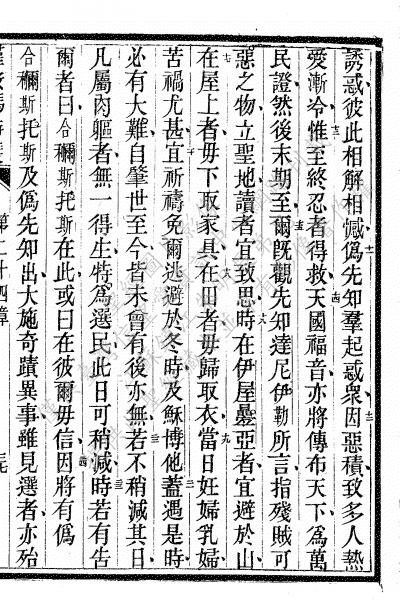 誘惑彼此相解相憾僞先知羣起惑衆因惡積致多人熱
愛漸冷惟至終忍者得救天國福音亦將傳布天下爲萬
民證然後末期至爾旣觀先知達尼伊勒所言指殘賊可
惡之物立聖地讀者宜致思時在伊屋疊亞者宜避於山
在屋上者毋下取家具在田者毋歸取衣當日妊婦乳婦
苦禍尤甚宜祈禱免爾逃避於冬時及穌博他蓋遇是時
必有大難自肇世至今皆未曾有後亦無若不稍減其日
凡屬肉軀者無一得生特爲選民此日可稍減時若有告
爾者曰合彌斯托斯在此或曰在彼爾毋信因將有僞
合彌斯托斯及僞先知出大施奇蹟異事雖見選者亦殆
第二十四章